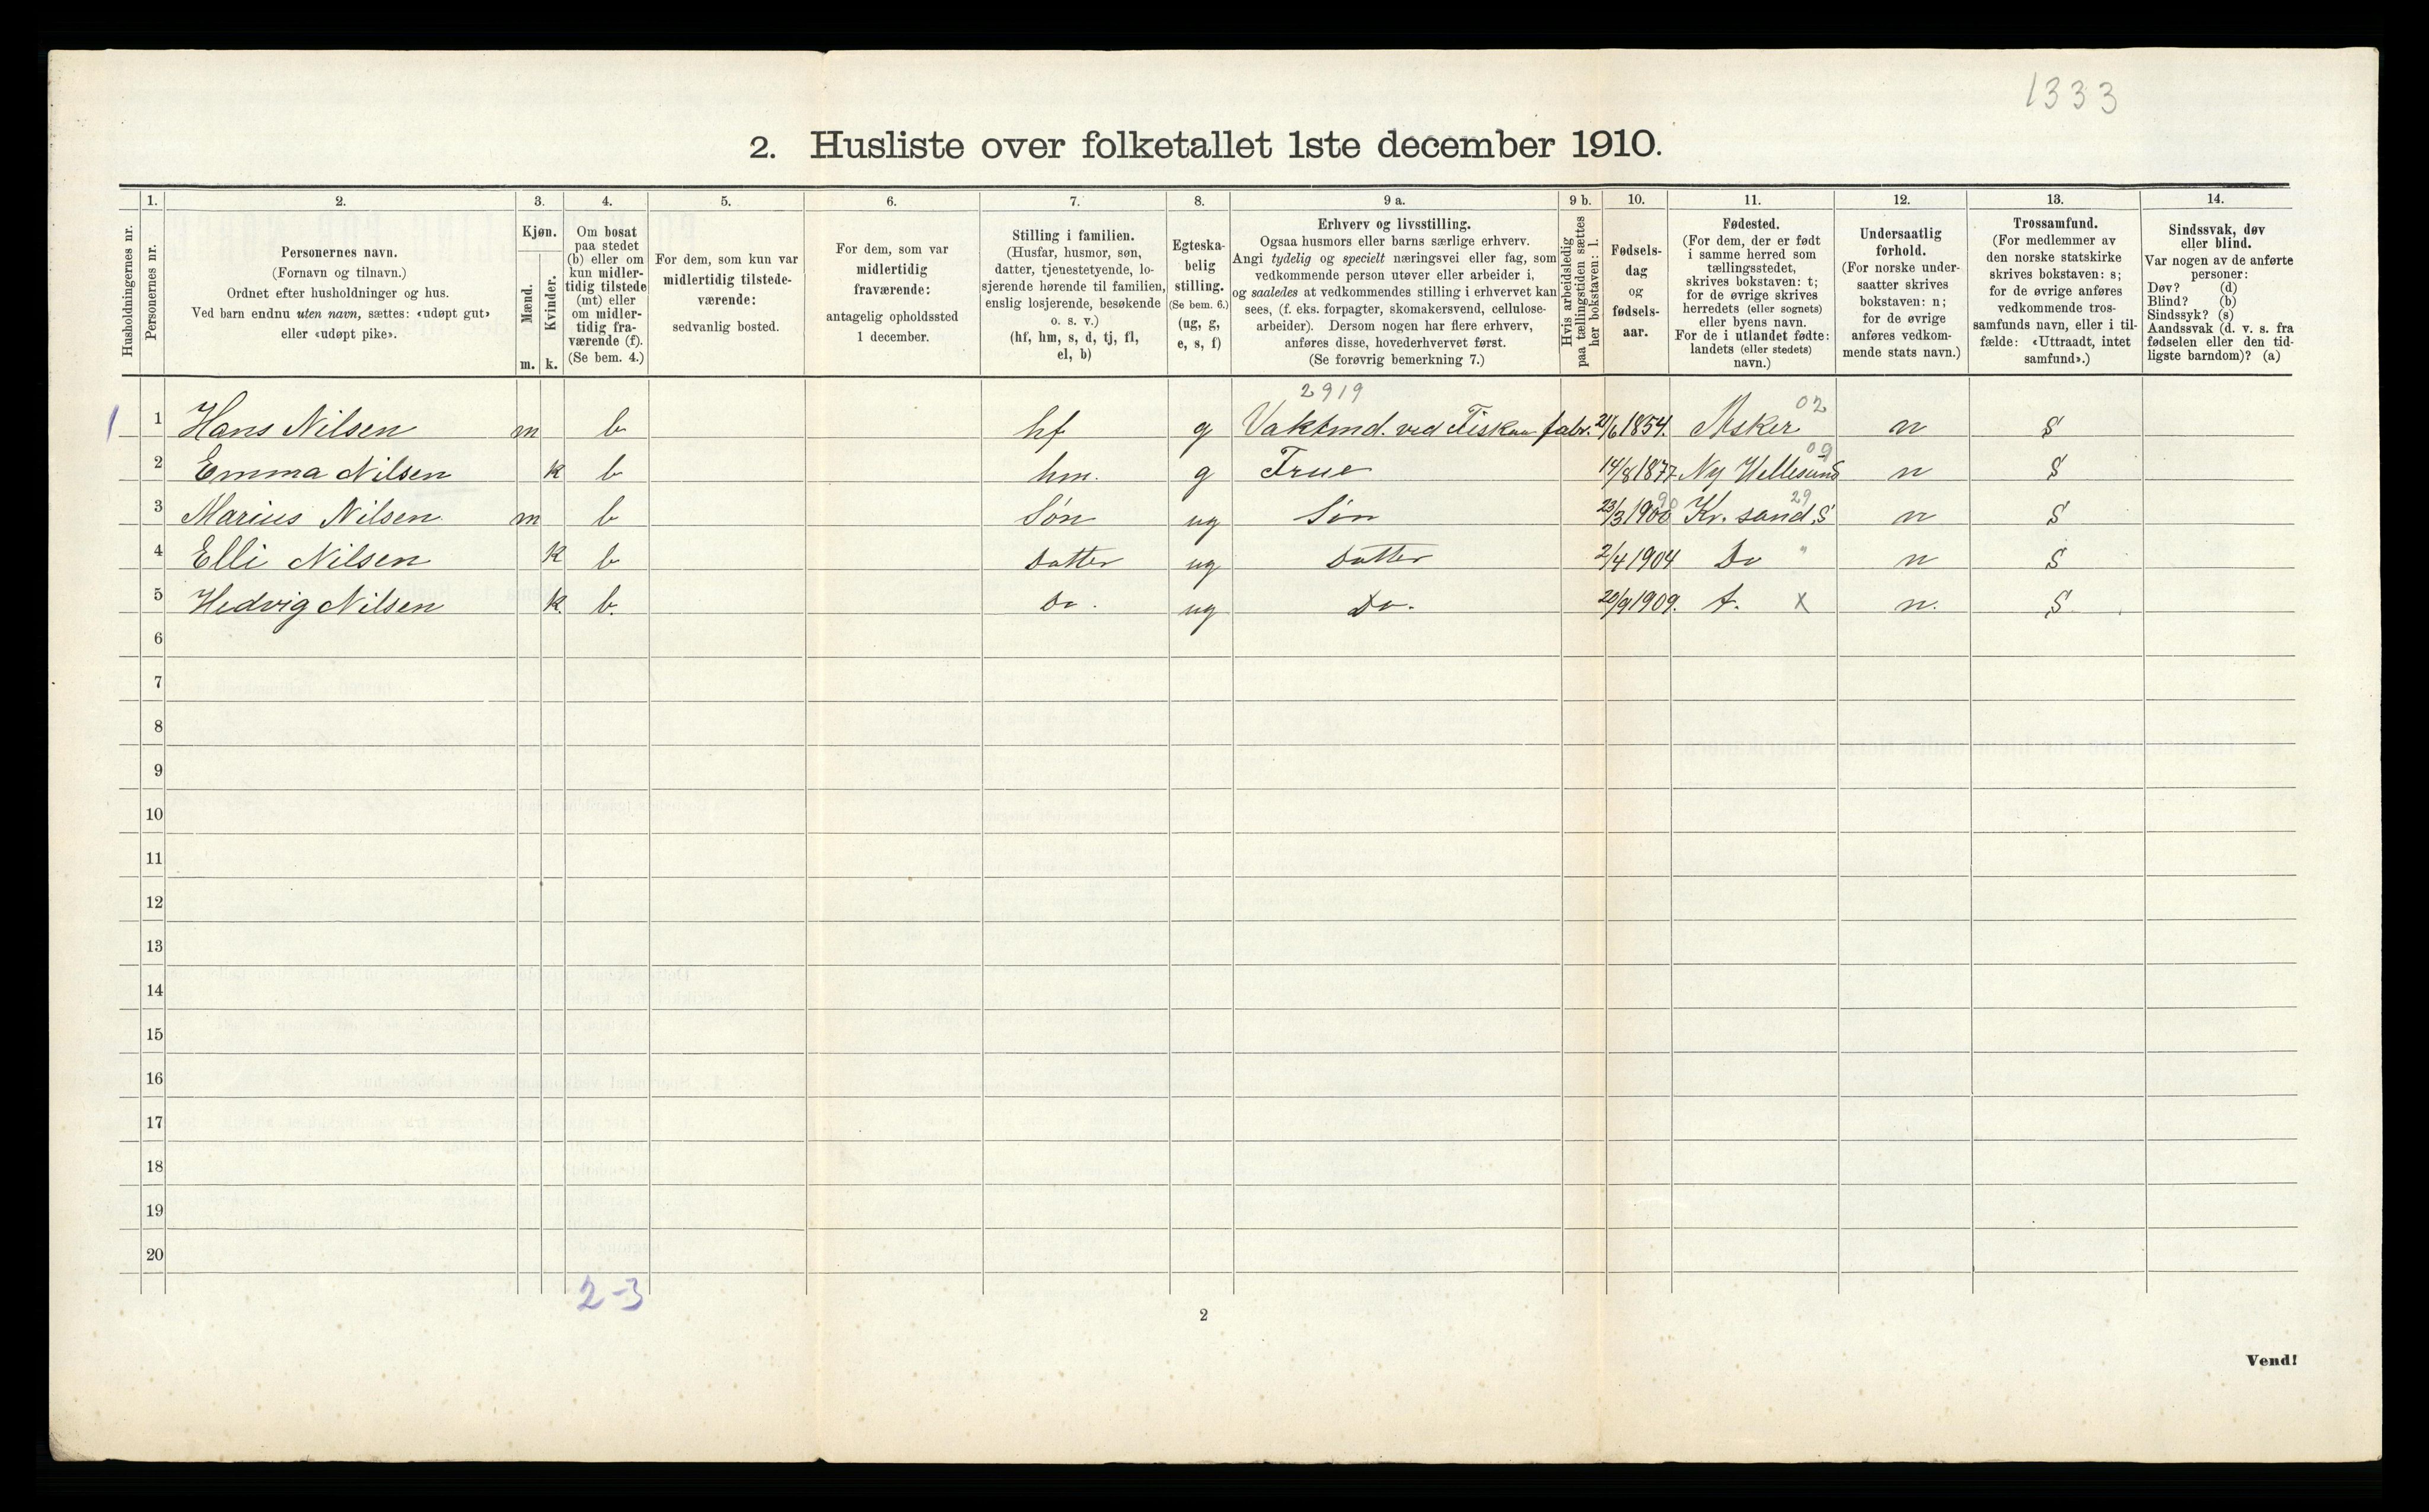 1333
2. Husliste over folketallet 1ste december 1910.
Husholdningernes nr.
1.
Personernes nr.
2.
Personernes navn.
(Fornavn og tilnavn.)
Ordnet efter husholdninger og hus.
Ved barn endnu uten navn, sættes: «udøpt gut»
eller «udøpt pike».
3.
Kjøn.
Mænd.
Kvinder.
m. k.
4.
Om bosat
paa stedet
(b) eller om
kun midler-
tidig tilstede
(mt) eller
om midler-
tidig fra-
værende (f).
(Se bem. 4.)
5.
For dem, som kun var
midlertidig tilstede-
værende:
sedvanlig bosted.
6.
For dem, som var
midlertidig
fraværende:
antagelig opholdssted
1 december.
7.
Stilling i familien.
(Husfar, husmor, søn,
datter, tjenestetyende, lo-
sjerende hørende til familien,
enslig losjerende, besøkende
o. s. v.)
(hf, hm, s, d, tj, fl,
el, b)
8.
Egteska-
belig
stilling.
(Se bem. 6.)
(ug, g,
e, s, f)
9 a.
Erhverv og livsstilling.
Ogsaa husmors eller barns særlige erhverv.
Angi tydelig og specielt næringsvei eller fag, som
vedkommende person utøver eller arbeider i,
og saaledes at vedkommendes stilling i erhvervet kan
sees, (f. eks. forpagter, skomakersvend, cellulose-
arbeider). Dersom nogen har flere erhverv,
anføres disse, hovederhvervet først.
(Se forøvrig bemerkning 7.)
9 b.
Hvis arbeidsledig
paa tællingstiden sættes
her bokstaven: l.
10.
Fødsels-
dag
og
fødsels-
aar.
11.
Fødested.
(For dem, der er født
i samme herred som
tællingsstedet,
skrives bokstaven: t;
for de øvrige skrives
herredets (eller sognets)
eller byens navn.
For de i utlandet fødte:
landets (eller stedets)
navn.)
12.
Undersaatlig
forhold.
(For norske under-
saatter skrives
bokstaven: n;
for de øvrige
anføres vedkom-
mende stats navn.)
13.
Trossamfund.
(For medlemmer av
den norske statskirke
skrives bokstaven: s;
for de øvrige anføres
vedkommende tros-
samfunds navn, eller i til-
fælde: «Uttraadt, intet
samfund».)
14.
Sindssvak, døv
eller blind.
Var nogen av de anførte
personer:
Døv? (d)
Blind? (b)
Sindssyk? (s)
Aandssvak (d. v. s. fra
fødselen eller den tid-
ligste barndom)? (a)
2919
1 1 Hans Nilsen m b hf g Vaktmd. ved Fiskaa fabr. 21/6 1854. Asker 02 n S
2 Emma Nilsen k b hm. g Frue 14/8 1877 Ny Hellesund 09 n S
3 Marius Nilsen m b Søn ug Søn 23/3 1900 Kr. sand S 29 n S
4 Elli Nilsen k b Datter ug Datter 2/4 1904 Do " n S
5 Hedvig Nilsen k. b. Do. ug Do. 20/9 1909. t. X n. S
6
7
8
9
10
11
12
13
14
15
16
17
18
19
20
2-3
2
Vend!